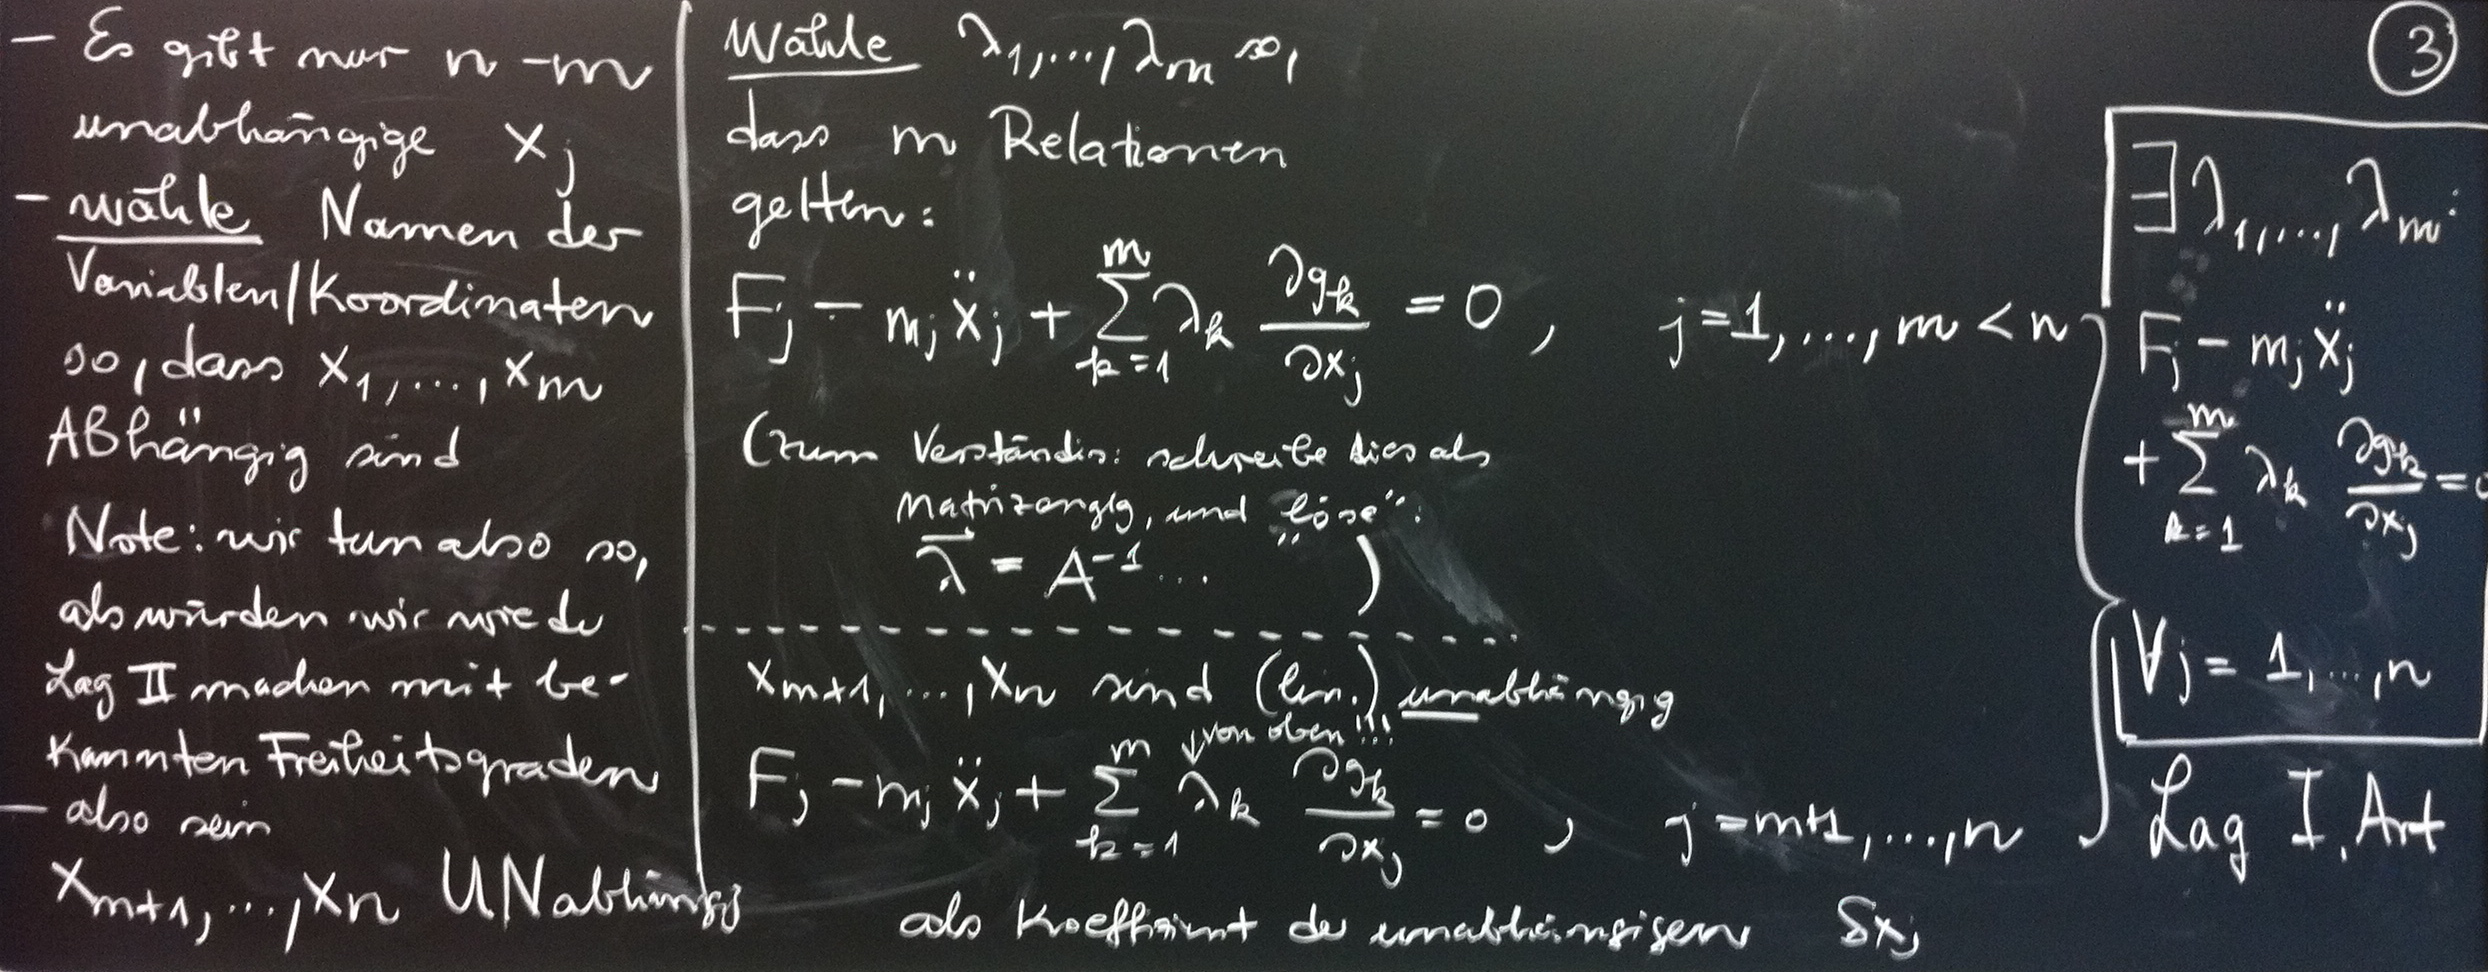 - Es gibt nur n-m
unabhängige x_j
- wähle Namen der
Variablen/Koordinaten
so, dass x_1, ..., x_m
ABhängig sind
Note: wir tun also so,
als würden wir wieder
Lag II machen mit be-
kannten Freiheitsgraden
- also sein
x_{m+1}, ..., x_n UNabhängig
Wähle λ_1, ..., λ_m so,
dass m Relationen
gelten:
F_j - m_j ẍ_j + ∑_{k=1}^{m} λ_k ∂g_k/∂x_j = 0 , j=1, ..., m < n
(zum Verständis: schreibe dies als
Matrizenglg, und "löse":
λ⃗ = A^{-1} ... )
x_{m+1}, ..., x_n sind (lin.) unabhängig
↓von oben!!!
F_j - m_j ẍ_j + ∑_{k=1}^{m} λ_k ∂g_k/∂x_j = 0 , j=m+1, ..., n
als Koeffizient der unabhängigen δx_j
③
∃ λ_1, ..., λ_m:
F_j - m_j ẍ_j
+ ∑_{k=1}^{m} λ_k ∂g_k/∂x_j = 0
∀j = 1, ..., n
Lag I. Art